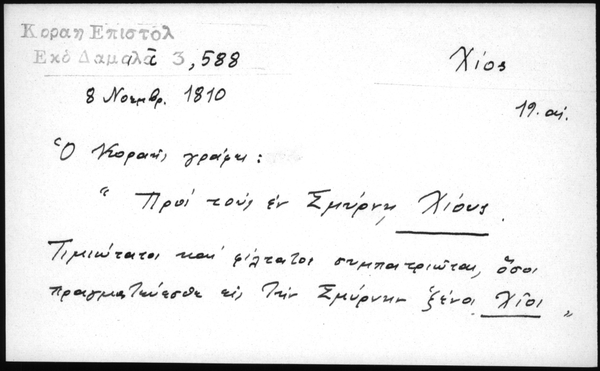 Κοραη Επιστολ
Εκδ Δαμαλᾶ 3,588
Χίος
8 Νοεμβρ. 1810
19. αἰ.
Ὁ Κοραῆς γράφει:
“Πρὸς τοὺς ἐν Σμύρνῃ Χίους.
Τιμιώτατοι καὶ φίλτατοι συμπατριῶται, ὅσοι
πραγματεύεσθε εἰς τὴν Σμύρνην ξένοι Χῖοι„